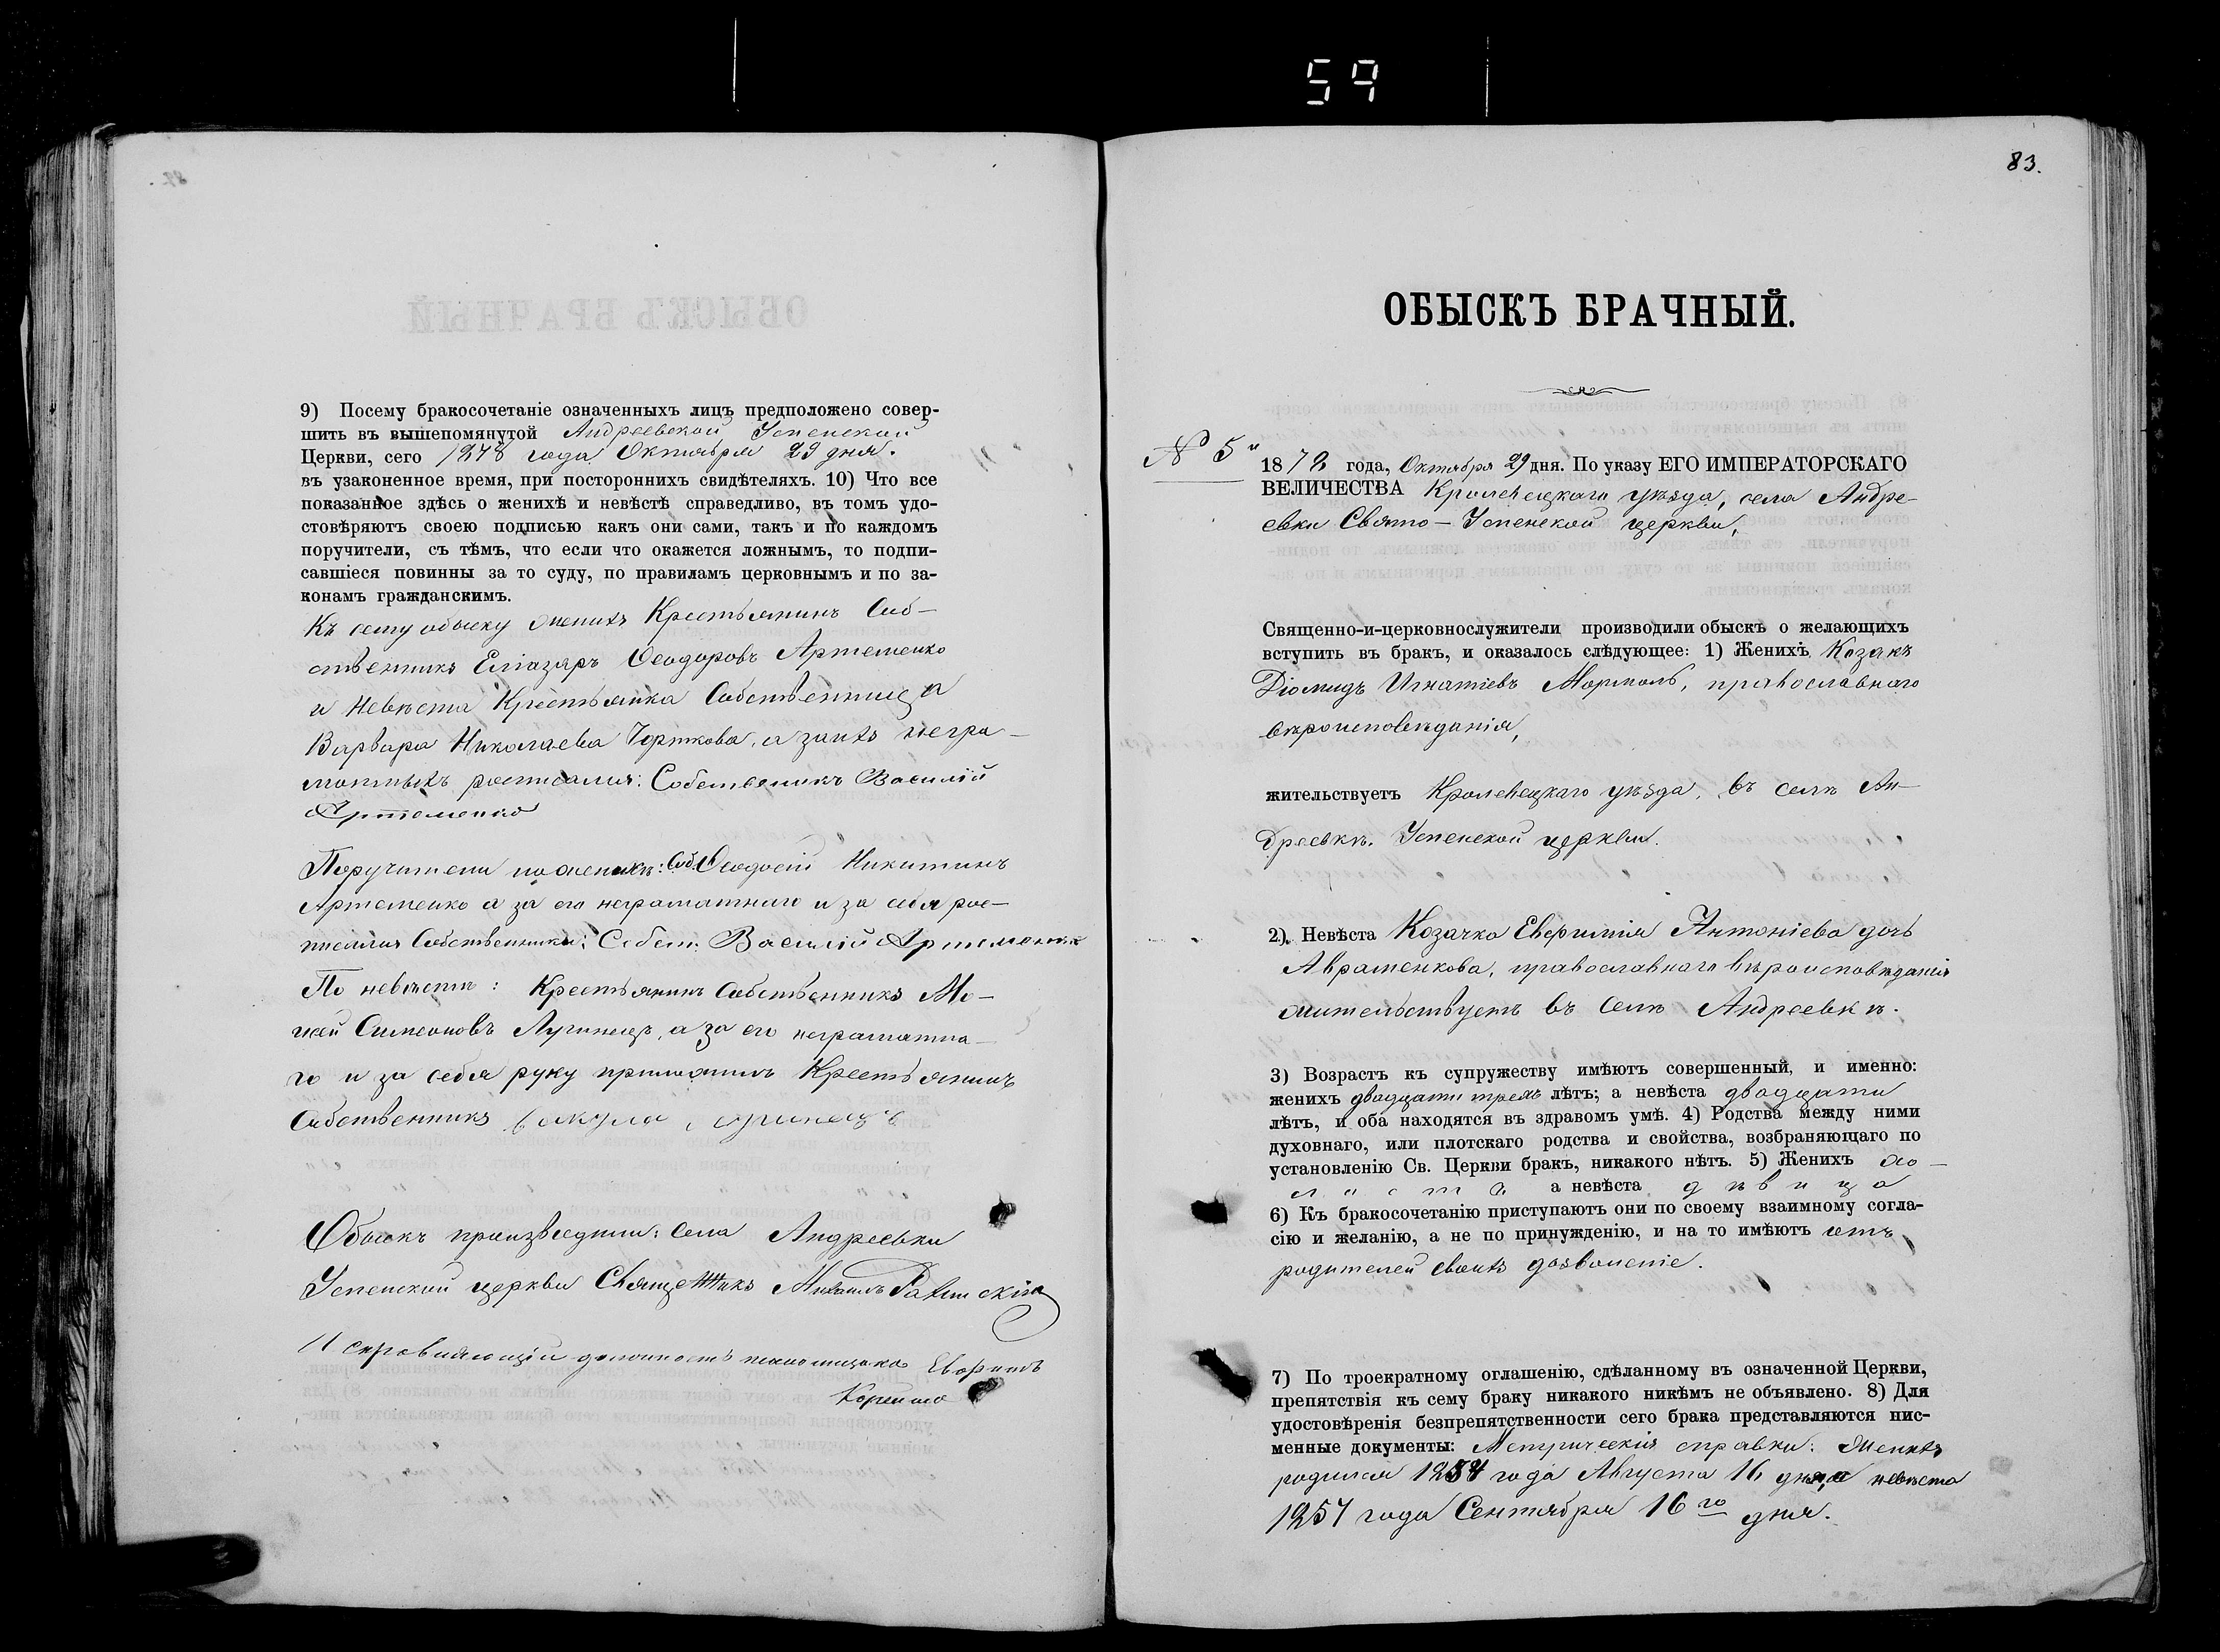 59
83.
9) Посему бракосочетаніе означенныхъ лицъ предположено совер-
шить въ вышепомянутой Андреевской Успенской
Церкви, сего 1878 года Октября 29 дня.
въ узаконенное время, при постороннихъ свидѣтеляхъ. 10) Что все
показанное здѣсь о женихѣ и невѣстѣ справедливо, въ томъ удо-
стовѣряютъ своею подписью какъ они сами, такъ и по каждомъ
поручители, съ тѣмъ, что если что окажется ложнымъ, то подпи-
савшіеся повинны за то суду, по правиламъ церковнымъ и по за-
конамъ гражданскимъ.
Къ сему обыску женихъ Крестьянинъ Соб-
ственникъ Еліазаръ Ѳеодоровъ Артеменко
и Невѣста Крестьянка Собственница
Варвара Николаева Чорткова, а за нихъ негра-
мотныхъ росписался: Собственикъ Василій
Артеменко
Поручители по женихѣ: Соб. Ѳеодосій Никитинъ
Артеменко а за его неграматнаго и за себя рос-
писался Собственникъ: Собст. Василій Артеменко
По невѣстѣ: Крестьянинъ Собственникъ Мо-
исей Симеоновъ Лугинецъ, а за его неграматна-
го и за себя руку приложилъ Крестьянинъ
Собственникъ Вакула Лугинецъ
Обыскъ производили: села Андреевки
Успенской церкви Священникъ Михаилъ
Исправляющій должность псаломщика
ОБЫСКЪ БРАЧНЫЙ.
№ 5
1878 года, Октября 29 дня. По указу ЕГО ИМПЕРАТОРСКАГО
ВЕЛИЧЕСТВА Кролевецкаго уѣзда, села Андре-
евки Свято-Успенской церкви,
Священно-и-церковнослужители производили обыскъ о желающихъ
вступить въ бракъ, и оказалось слѣдующее: 1) Женихъ Козакъ
Діомидъ Игнатіевъ Мормоль, православнаго
вѣроисповѣданія,
жительствуетъ Кролевецкаго уѣзда, въ селѣ Ан-
дреевкѣ. Успенской церкви.
2) Невѣста Козачка Евфимія Антоніева дочь
Авраменкова, православнаго вѣроисповѣданія
жительствуетъ въ селѣ Андреевкѣ.
3) Возрастъ къ супружеству имѣютъ совершенный, и именно:
женихъ двадцати трехъ лѣтъ; а невѣста двадцати
лѣтъ, и оба находятся въ здравомъ умѣ. 4) Родства между ними
духовнаго, или плотскаго родства и свойства, возбраняющаго по
установленію Св. Церкви бракъ, никакого нѣтъ. 5) Женихъ хо-
лостъ а невѣста дѣвица
6) Къ бракосочетанію приступаютъ они по своему взаимному согла-
сію и желанію, а не по принужденію, и на то имѣютъ отъ
родителей своихъ дозволеніе.
7) По троекратному оглашенію, сдѣланному въ означенной Церкви,
препятствія къ сему браку никакого никѣмъ не объявлено. 8) Для
удостовѣренія безпрепятственности сего брака представляются пис-
менные документы: Метрическія справки: Женихъ
родился 1854 года Августа 16 дня, а невѣста
1857 года Сентября 16го дня.